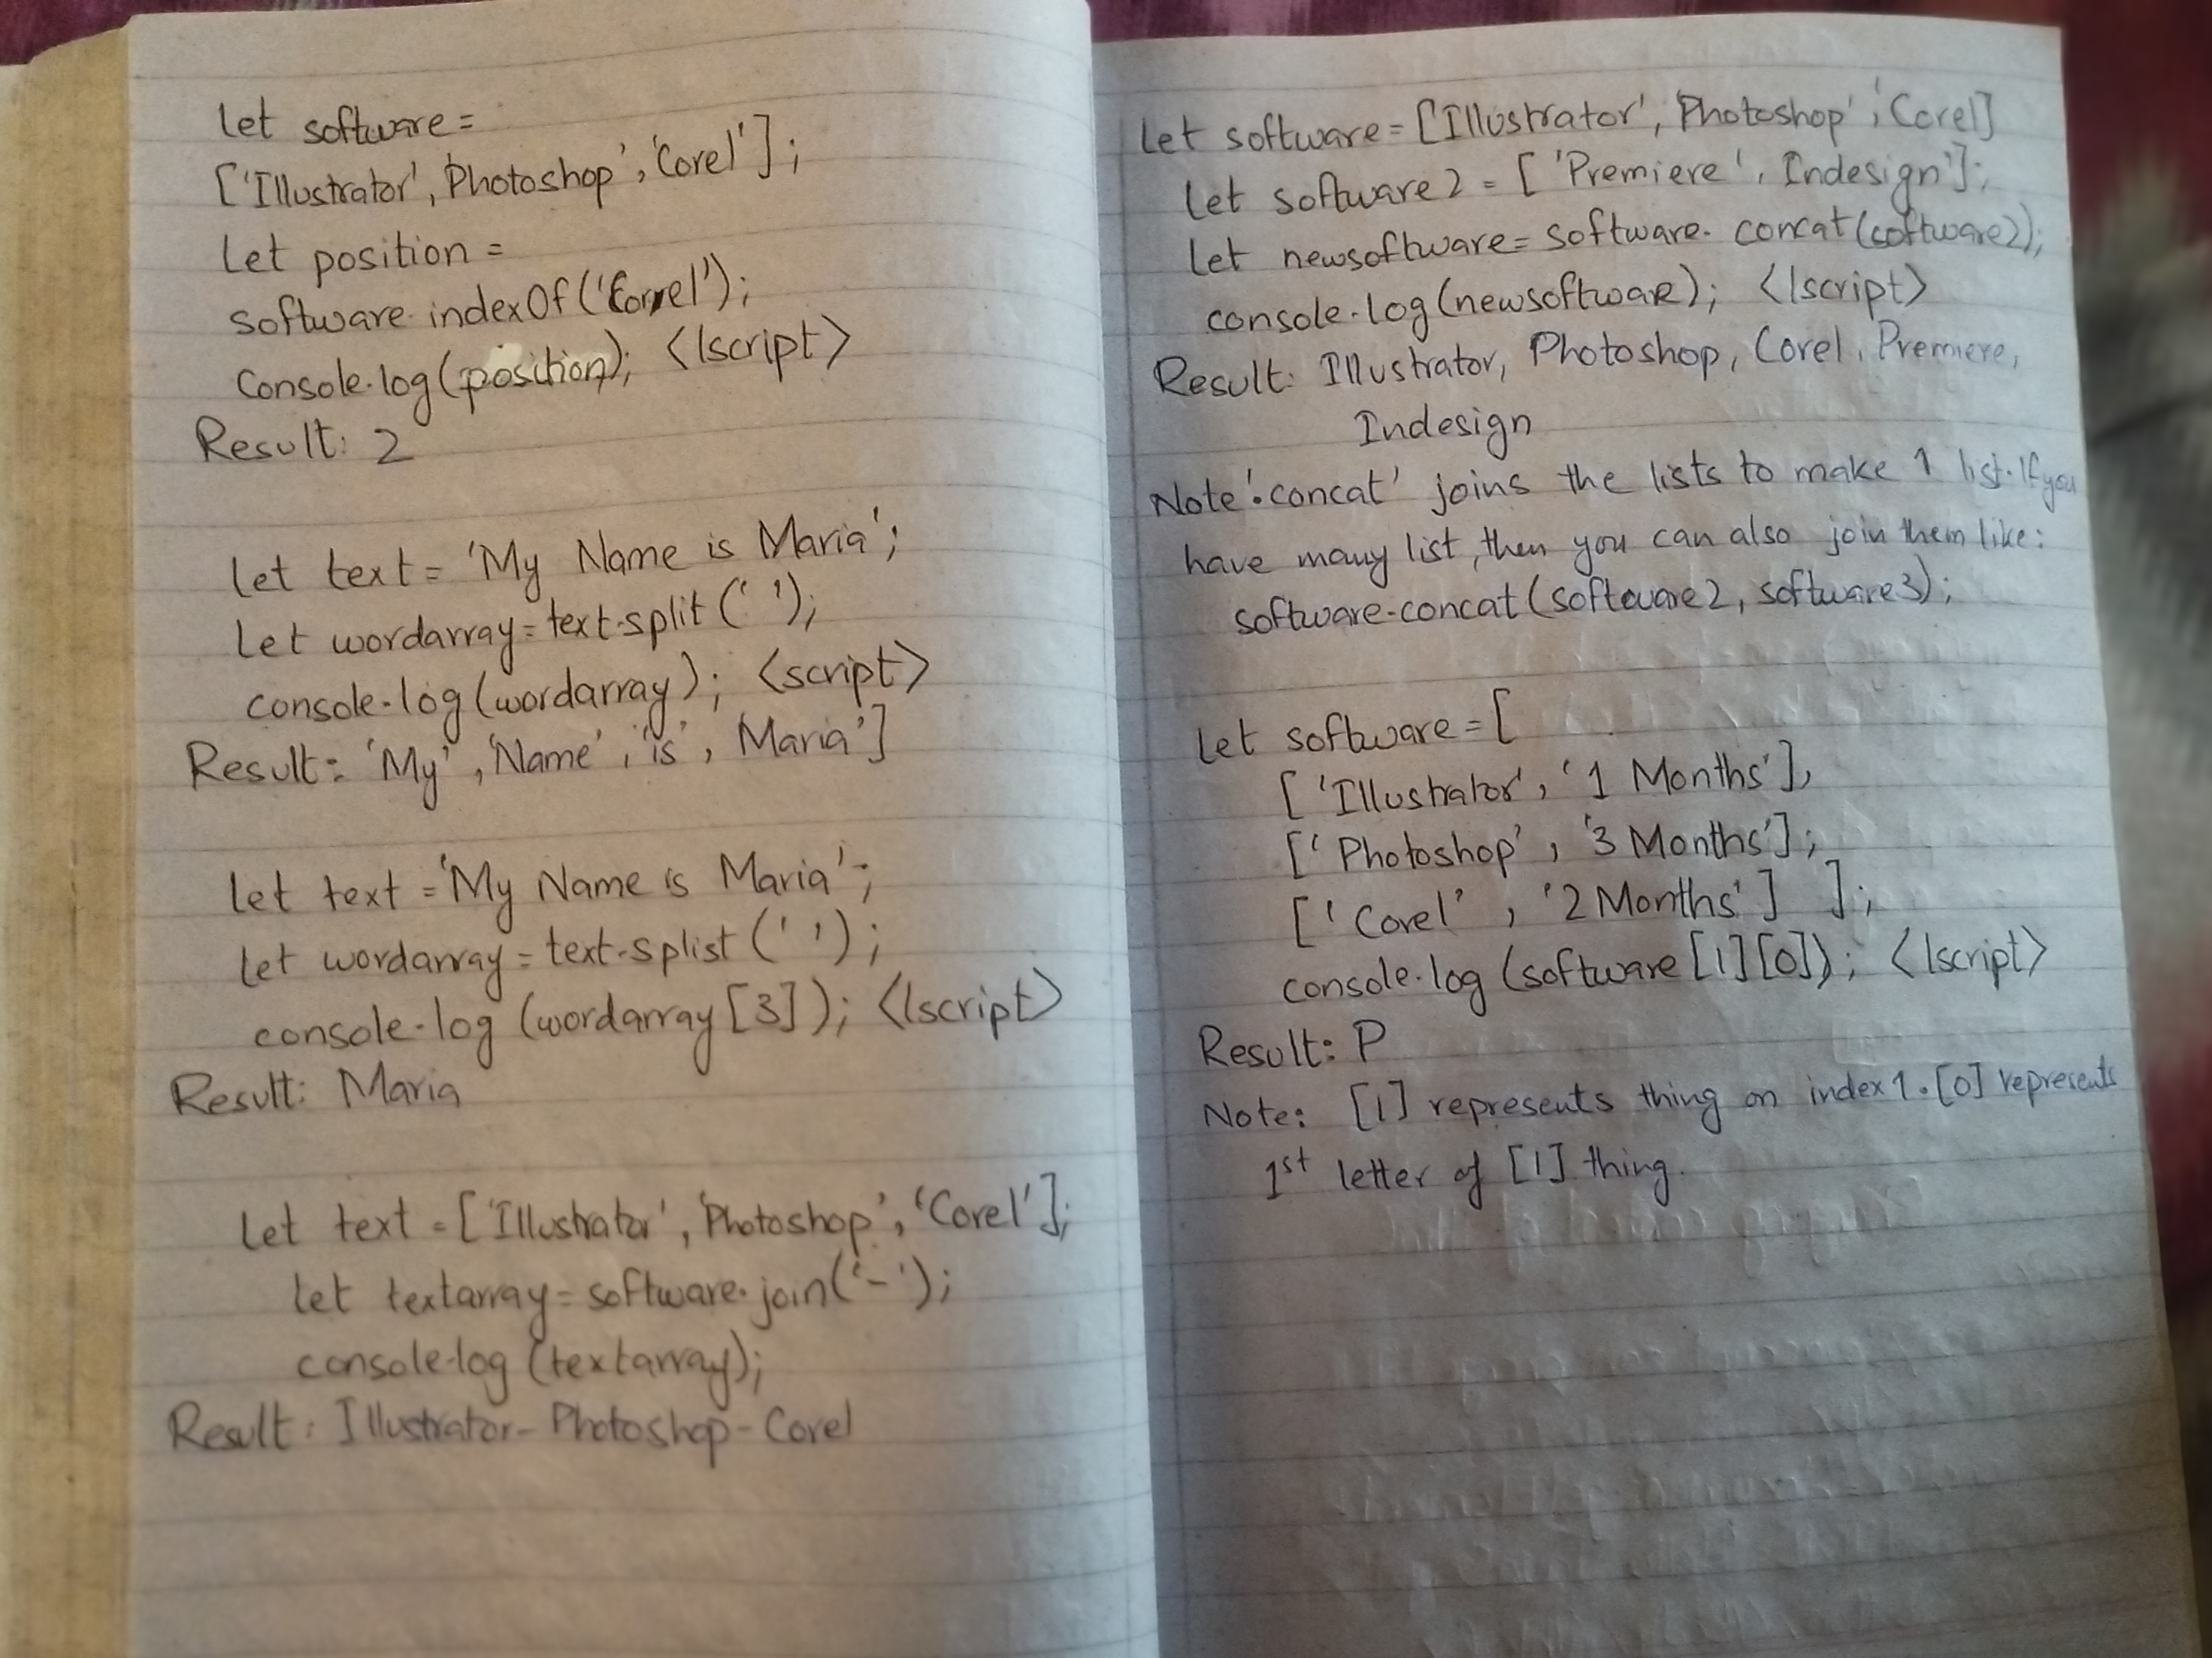 let software =
['Illustrator', 'Photoshop', 'Corel'];
let position =
software.indexOf('Correl');
Console.log(position); </script>
Result: 2
let text = 'My Name is Maria';
let wordarray = text.split(' ');
console.log(wordarray); <script>
Result: 'My', 'Name', 'is', Maria']
let text = 'My Name is Maria';
let wordarray = text.splist(' ');
console.log (wordarray [3]); </script>
Result: Maria
let text = ['Illustrator', 'Photoshop', 'Corel'];
let textarray = software.join('-');
console.log (textarray);
Result: Illustrator-Photoshop-Corel
let software = [Illustrator', 'Photoshop', 'Corel]
let software2 = ['Premiere', Indesign'];
let newsoftware = software.concat(software2);
console.log(newsoftware); </script>
Result: Illustrator, Photoshop, Corel, Premiere,
Indesign
Note '.concat' joins the lists to make 1 list. If you
have many list, then you can also join them like:
software.concat(software2, software3);
let software = [
['Illustrator', '1 Months'],
['Photoshop', '3 Months'];
['Corel', '2 Months'] ];
console.log (software [1][0]); </script>
Result: P
Note: [1] represents thing on index 1. [0] represents
1st letter of [1] thing.